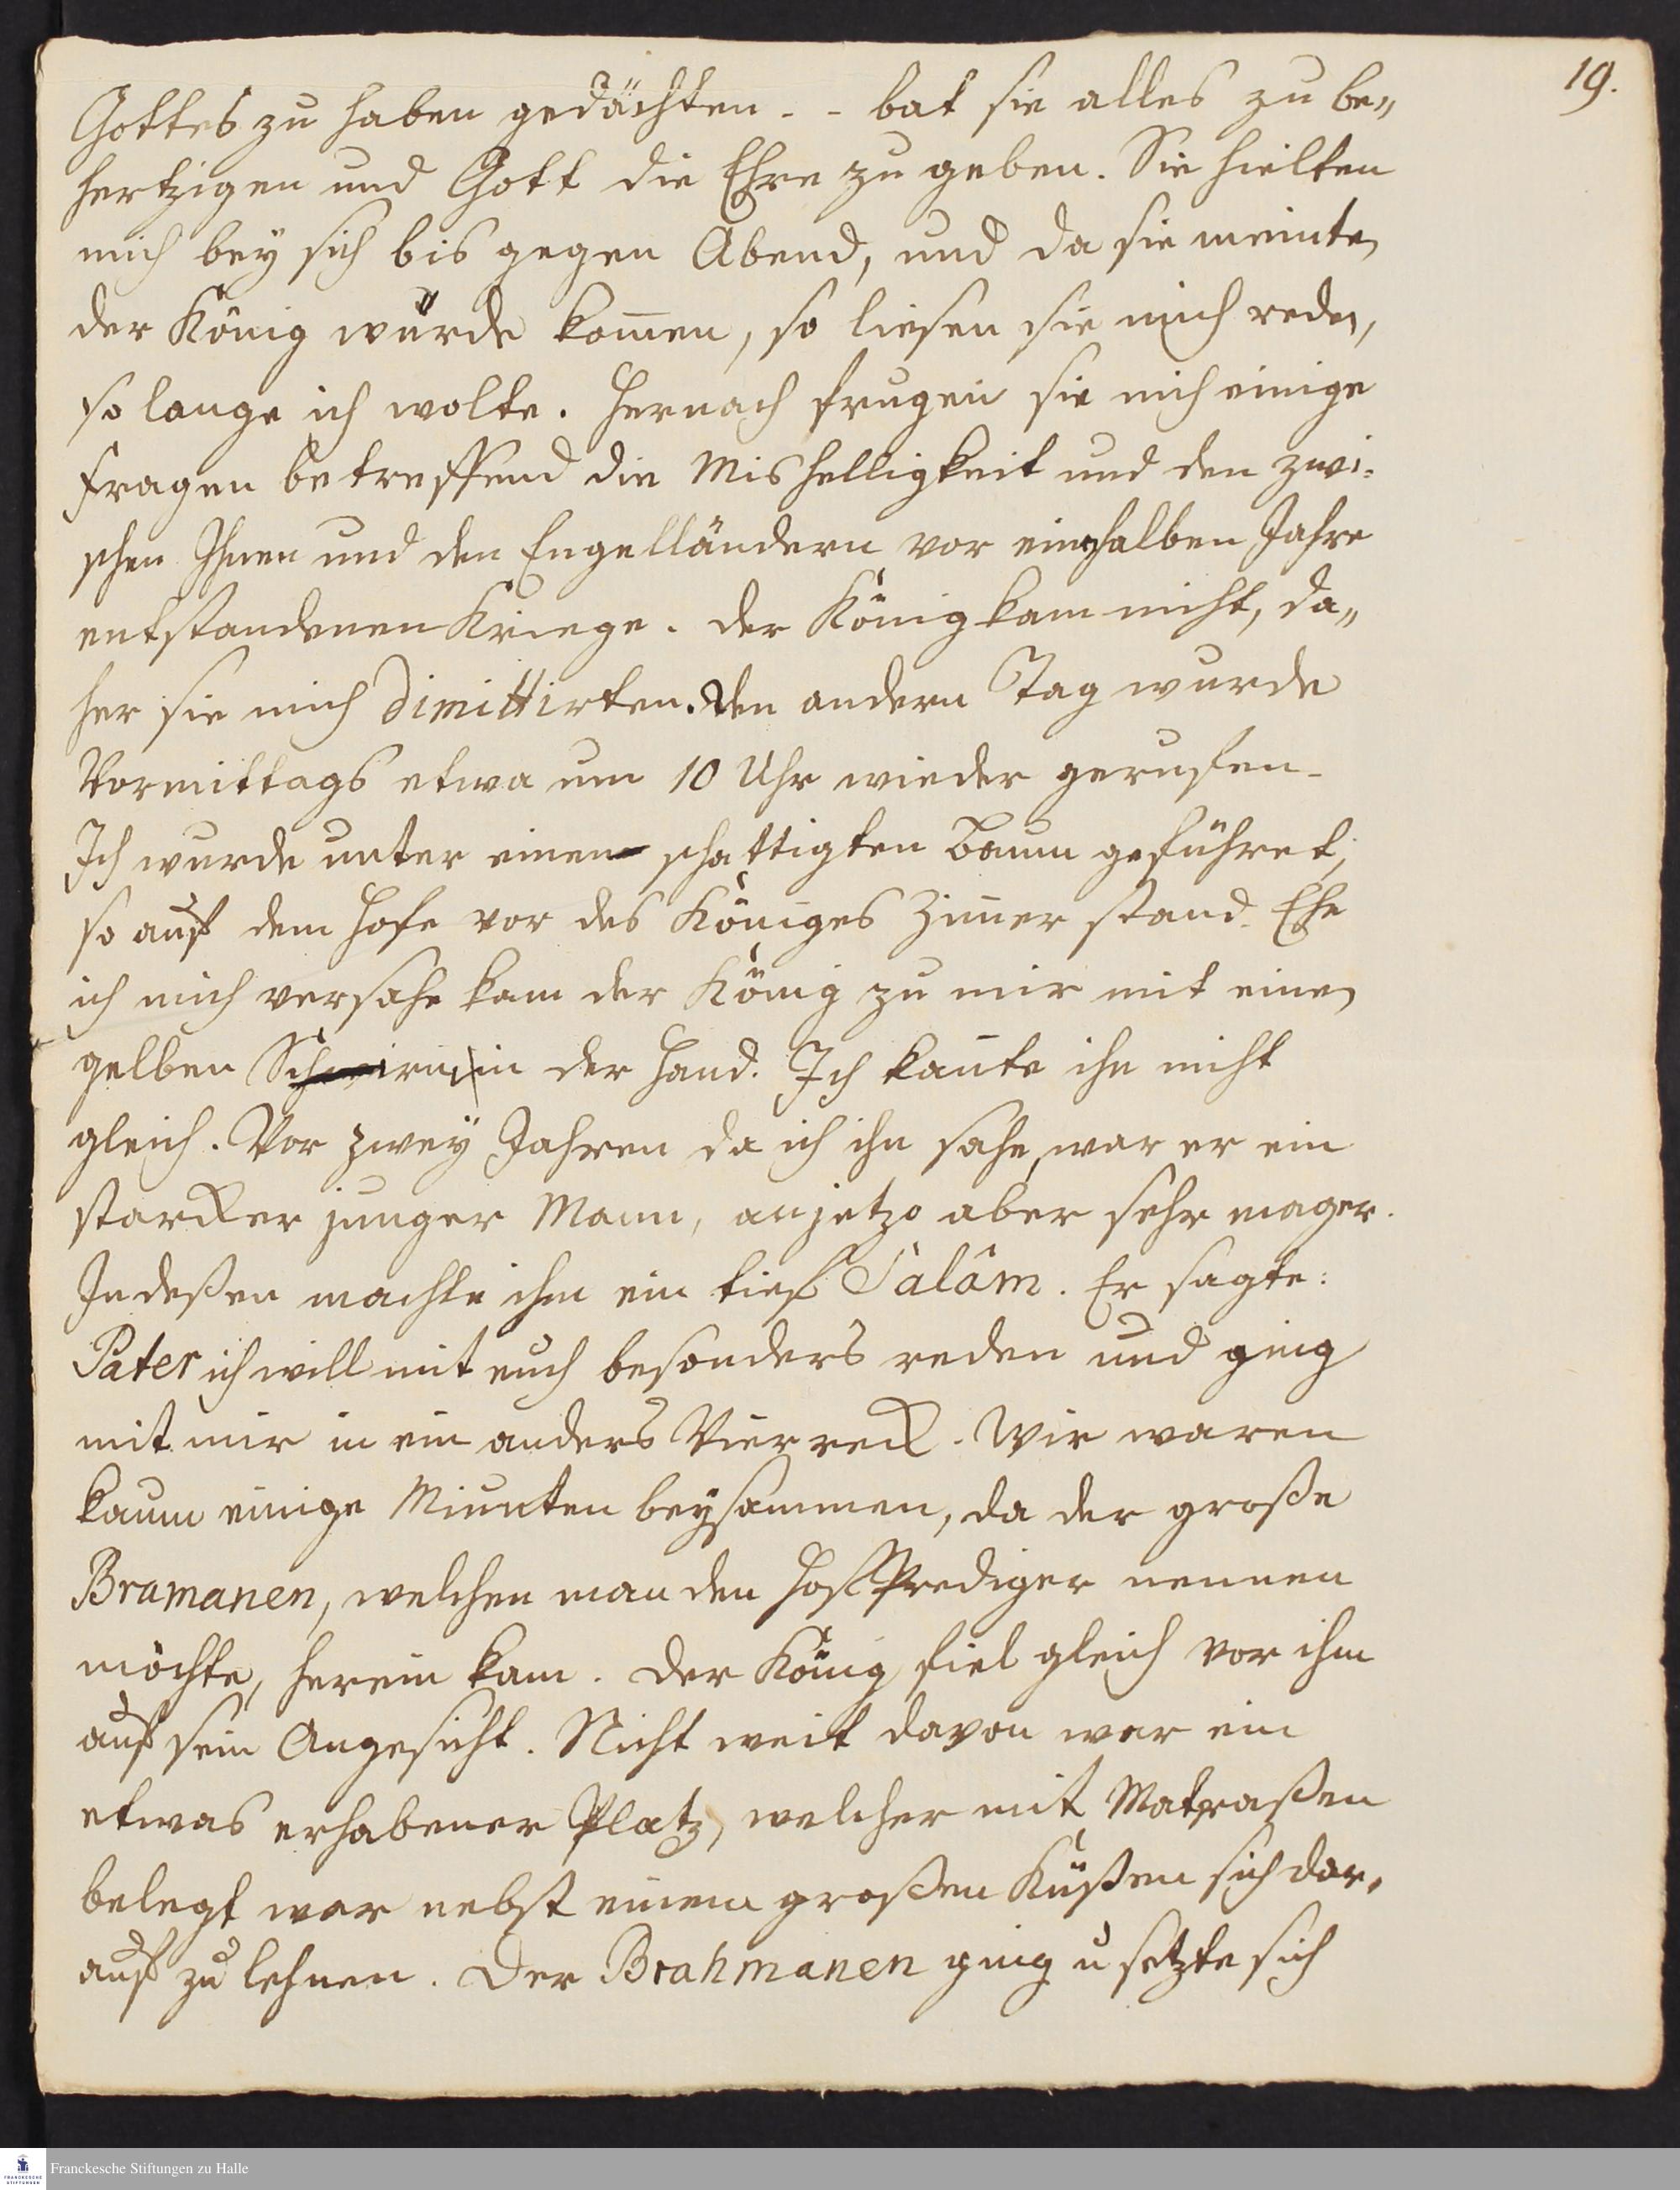 19.
Gottes zu haben gedächten - - bat sie alles zu be„
hertzigen und Gott die Ehre zu geben. Sie hielten
mich bey sich bis gegen Abend, und da sie meinten
der König würde kom̅en, so liesen sie mich reden,
so lange ich wolte. Hernach frugen sie mich einige
Fragen betreffend die Mishelligkeit und den zwi-
schen Ihnen und den Engelländern vor einhalben Jahre
entstandenen Kriege. Der König kam nicht, da„
her sie mich dimittirten. Den andern Tag wurde
Vormittags etwa um 10 Uhr wieder gerufen.
Ich wurde unter einen schattigten Baum geführet,
so auf dem Hofe vor des Königes Zim̅er stand. Ehe
ich mich versahe kam der König zu mir mit einen
gelben Schirm in der Hand. Ich kan̅te ihn nicht
gleich. Vor zwey Jahren da ich ihn sahe, war er ein
starcker junger Mann, anjetzo aber sehr mager.
Indeßen machte ihm ein tief Salâm. Er sagte:
Pater ich will mit euch besonders reden und ging
mit mir in ein anders Vierreck. Wir waren
kaum einige Minuten beysammen, da der große
Bramanen, welchen man den HofPrediger nennen
möchte, herein kam. Der König fiel gleich vor ihm
auf sein Angesicht. Nicht weit davon war ein
etwas erhabener Platz, welcher mit Matraßen
belegt war nebst einem großen Küßen sich dar„
auf zu lehnen. Der Brahmanen ging u setzte sich
Franckesche Stiftungen zu Halle
FRANCKESCHE STIFTUNGEN